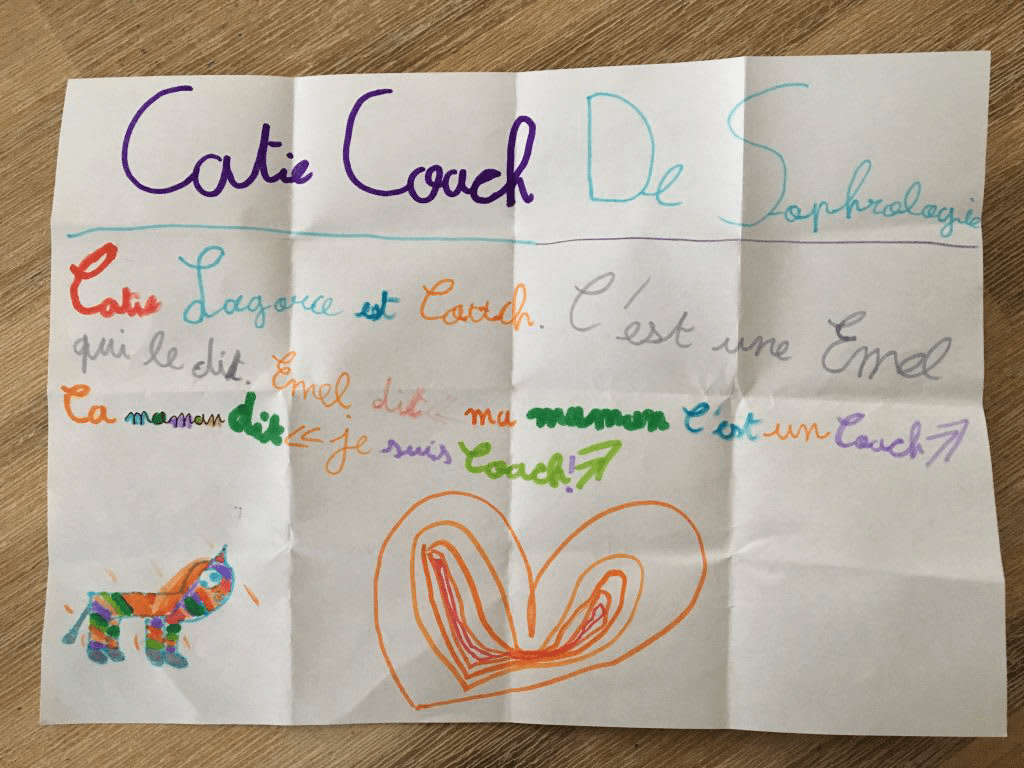 Catie Coach De Sophrologie
Catie Lagorce est Coatch. C'est une Emel
qui le dit. Emel dit << ma maman C'est un Coach >>
La maman dit << je suis Coach! >>